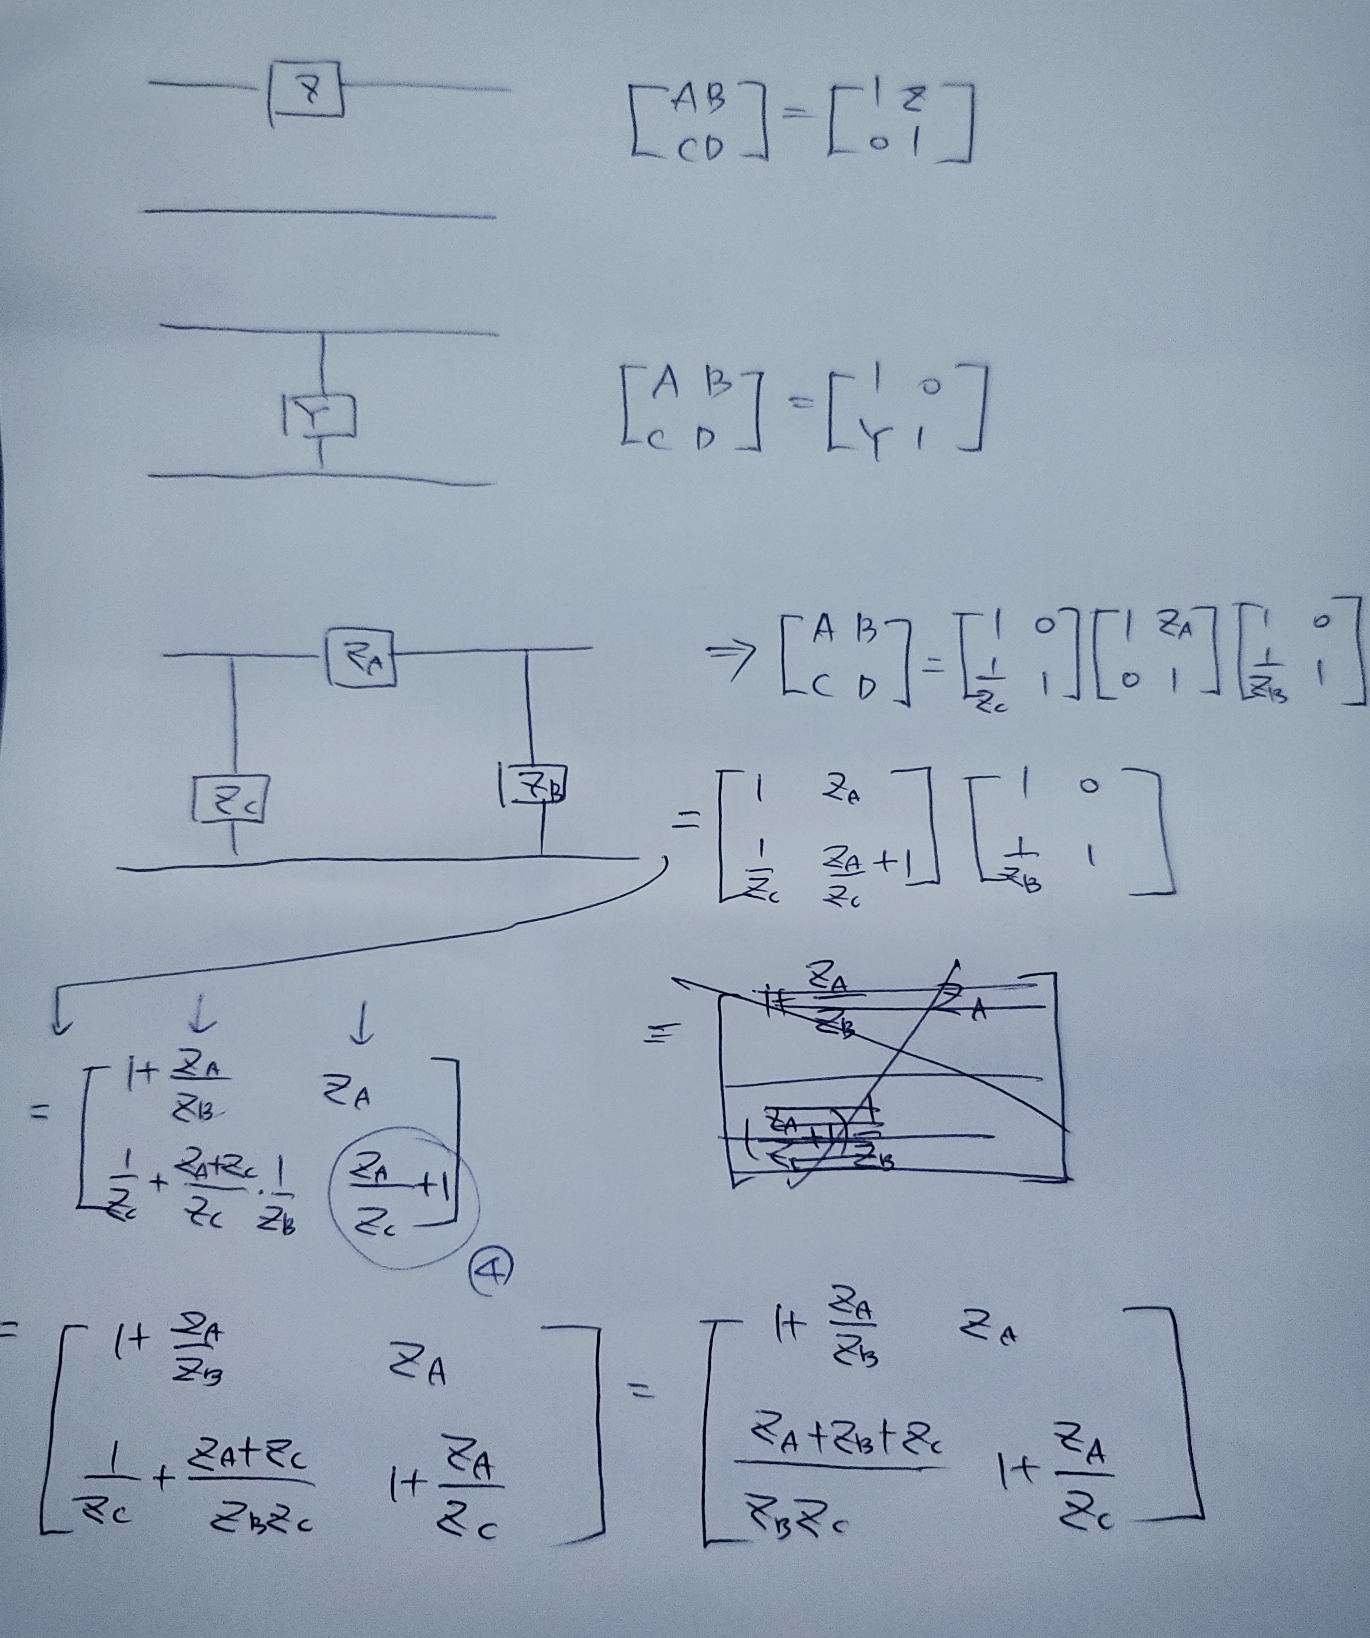 Z
[A B; C D] = [1 Z; 0 1]
Y
[A B; C D] = [1 0; Y 1]
Z_A
Z_C
Z_B
⇒ [A B; C D] = [1 0; 1/Z_C 1] [1 Z_A; 0 1] [1 0; 1/Z_B 1]
= [1 Z_A; 1/Z_C Z_A/Z_C + 1] [1 0; 1/Z_B 1]
= [1 + Z_A/Z_B Z_A; 1/Z_C + (Z_A + Z_C)/Z_C · 1/Z_B Z_A/Z_C + 1]
④
= [1 + Z_A/Z_B Z_A; 1/Z_C + (Z_A + Z_C)/(Z_B Z_C) 1 + Z_A/Z_C] = [1 + Z_A/Z_B Z_A; (Z_A + Z_B + Z_C)/(Z_B Z_C) 1 + Z_A/Z_C]